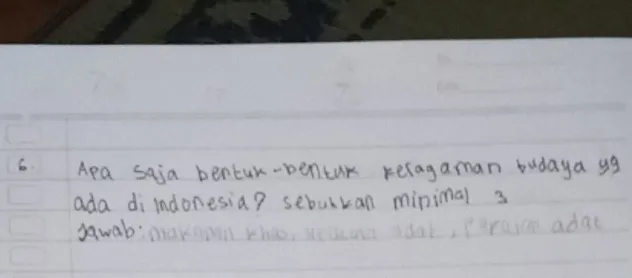 6. Apa saja bentuk-bentuk keragaman budaya yg
ada di Indonesia? sebutkan minimal 3
Jawab: makanan khas, adat, adat